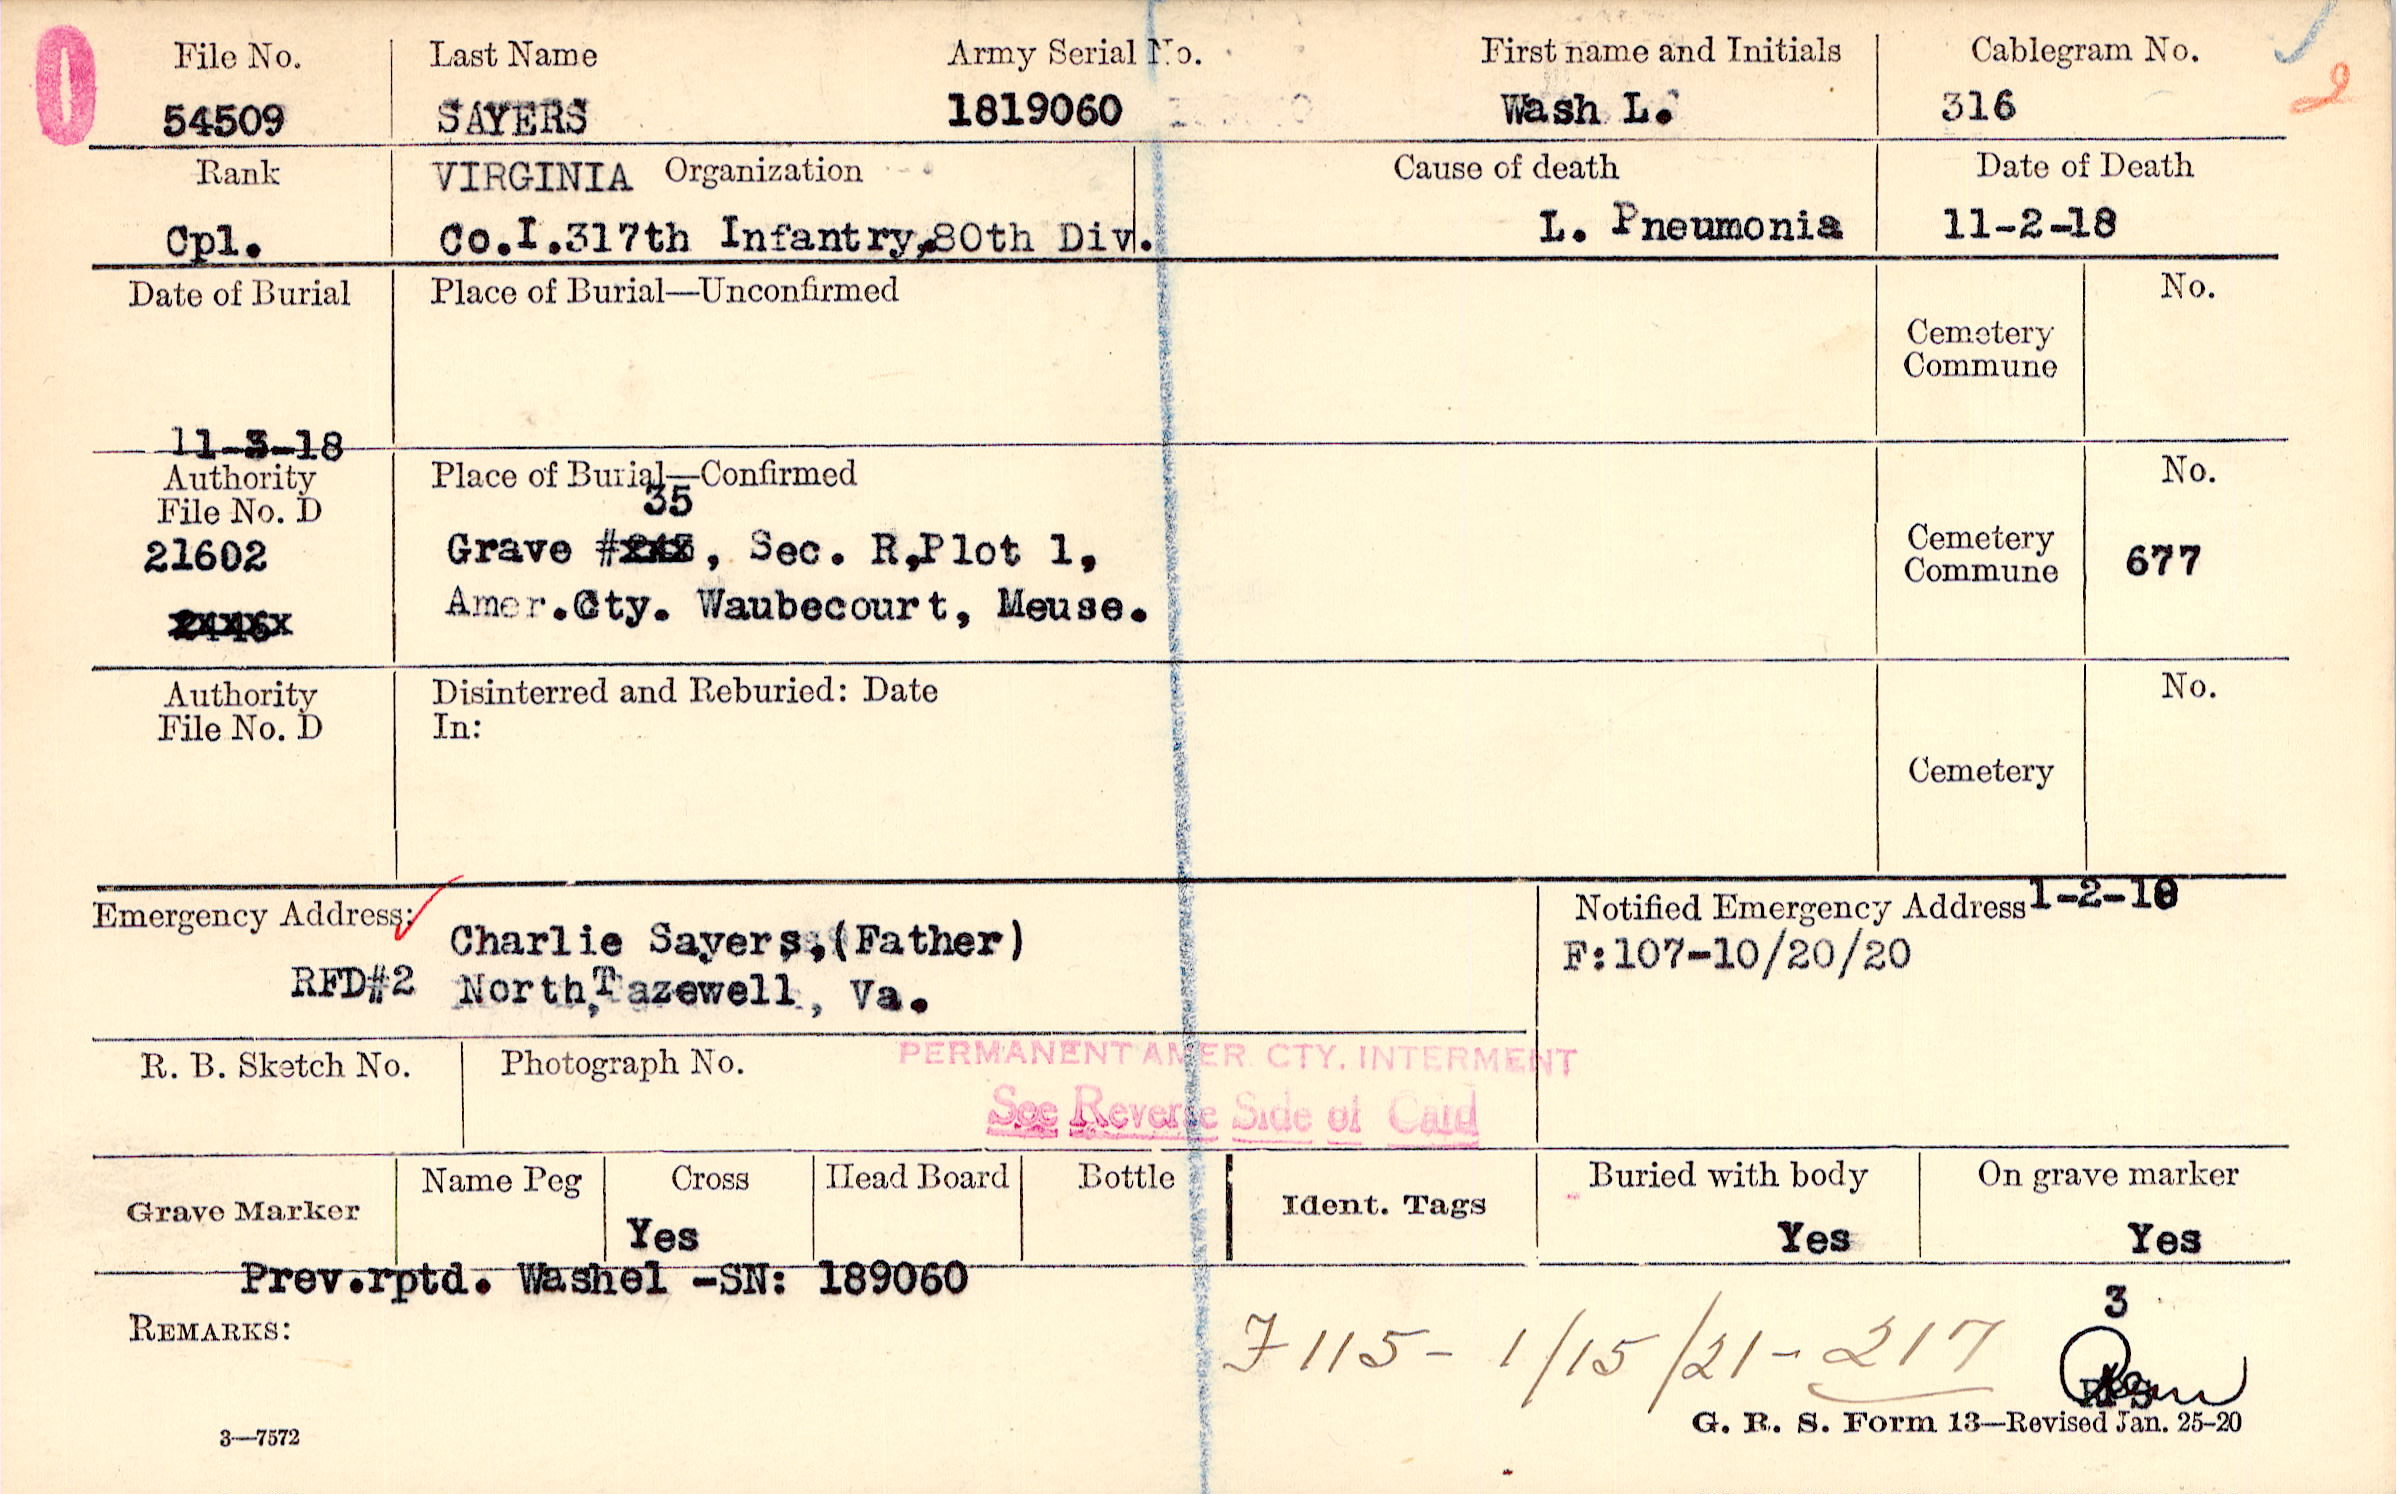 File No. Last Name Army Serial No. First name and Initials Cablegram No.
54509 SAYERS 1819060 Wash L. 316
2
Rank VIRGINIA Organization Cause of death Date of Death
Cpl. Co.I.317th Infantry,80th Div. L. Pneumonia 11-2-18
Date of Burial Place of Burial—Unconfirmed No.
Cemetery
Commune
11-3-18
Authority Place of Burial—Confirmed No.
File No. D 35
21602 Grave #, Sec. R,Plot 1, Cemetery
Commune 677
Amer.Cty. Waubecourt, Meuse.
Authority Disinterred and Reburied: Date No.
File No. D In:
Cemetery
Emergency Address: Notified Emergency Address 1-2-18
Charlie Sayers,(Father) F:107-10/20/20
RFD#2 North,Tazewell, Va.
R. B. Sketch No. Photograph No. PERMANENT AMER. CTY. INTERMENT
See Reverse Side of Card
Grave Marker Name Peg Cross Head Board Bottle Ident. Tags Buried with body On grave marker
Yes Yes Yes
Prev.rptd. Washel -SN: 189060
3
REMARKS: F 115- 1/15/21- 217
3—7572 G. R. S. Form 13—Revised Jan. 25-20